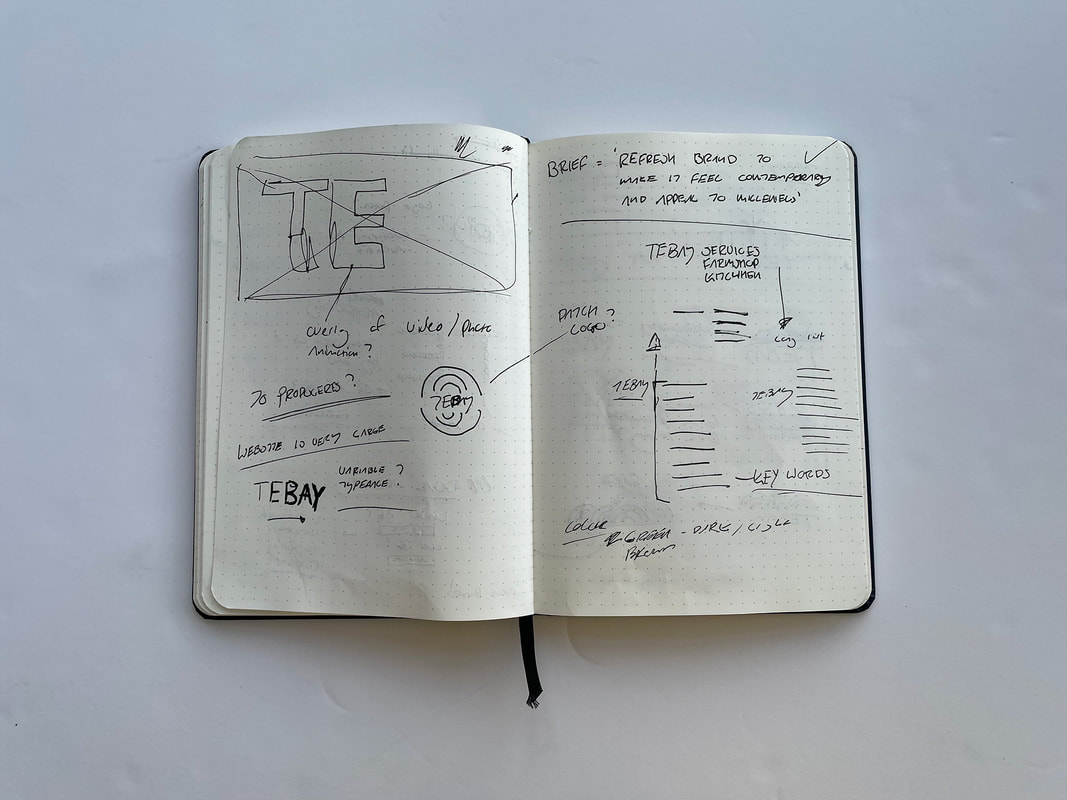 TE
overlay of video / photo
Animation?
70 PRODUCERS?
TEBAY
WEBSITE IS VERY LARGE
TEBAY
VARIABLE ?
TYPEFACE ?
BRIEF = 'REFRESH BRAND TO
MAKE IT FEEL CONTEMPORARY
AND APPEAL TO MILLENIALS'
TEBAY SERVICES
FARMSHOP
KITCHEN
PATCH ?
LOGO
long list
TEBAY
TEBAY
KEY WORDS
COLOUR
GREEN - DARK / LIGHT
Brown